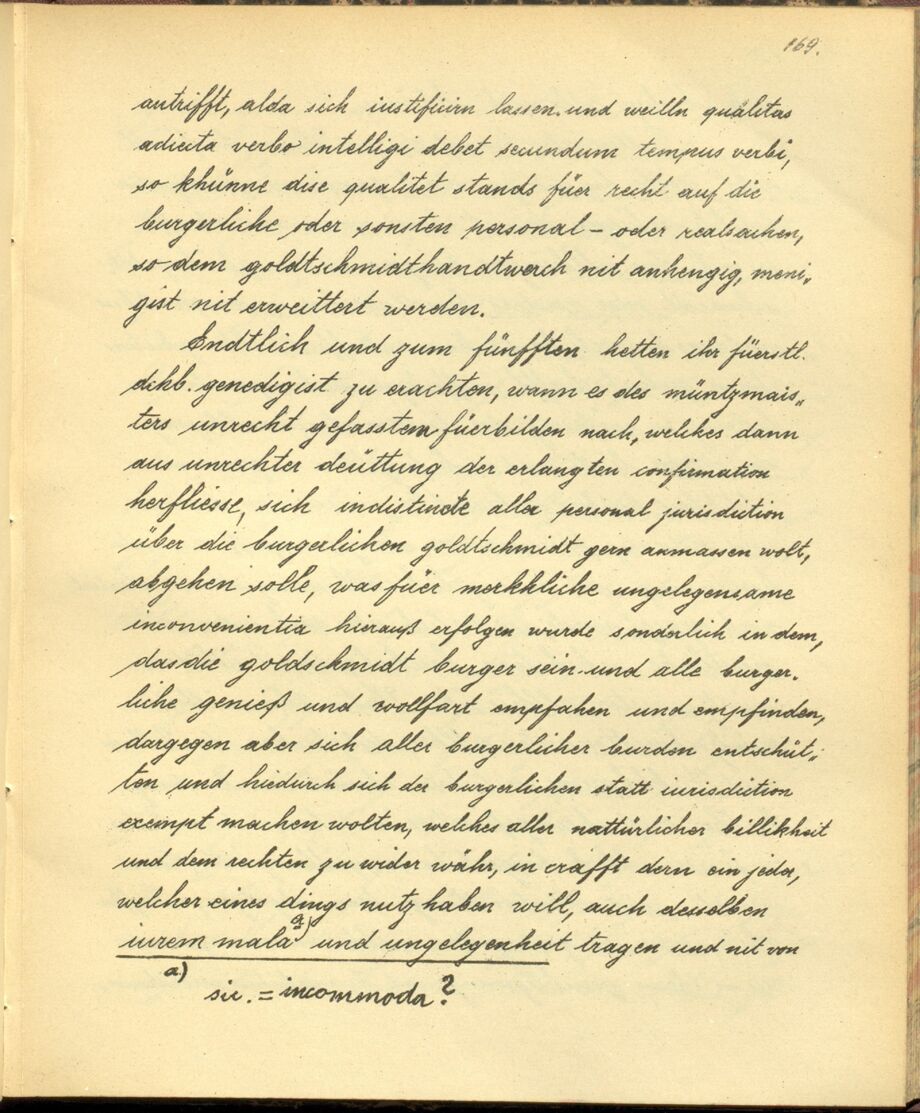 169.
antrifft, alda sich iustificirn lassen. und weilln qualitas
adiecta verbo intelligi debet secundum tempus verbi,
so khünne dise qualitet stands füer recht auf die
burgerliche oder sonsten personal- oder realsachen,
so dem goldtschmidthandtwerch nit anhengig, meni„
gist nit erweittert werden.
Endtlich und zum fünfften hetten ihr füerstl.
dchb. genedigist zu erachten, wann es des müntzmais„
ters unrecht gefasstem füerbilden nach, welches dann
aus unrechter deüttung der erlangten confirmation
herfliesse, sich indistincte aller personal jurisdiction
über die burgerlichen goldtschmidt gern anmassen wolt,
abgehen solle, was füer merkhliche ungelegensame
inconvenientia hierauß erfolgen wurde sonderlich in dem,
das die goldschmidt burger sein und alle burger„
liche genieß und wollfart empfahen und empfinden,
dargegen aber sich aller burgerlicher burden entschüt„
ten und hiedurch sich der burgerlichen statt iurisdiction
exempt machen wolten, welches aller nattürlicher billikheit
und dem rechten zu wider währ, in crafft dern ein jeder,
welcher eines dings nutz haben will, auch desselben
iurem mala a) und ungelegenheit tragen und nit von
a.) sic. = incommoda?